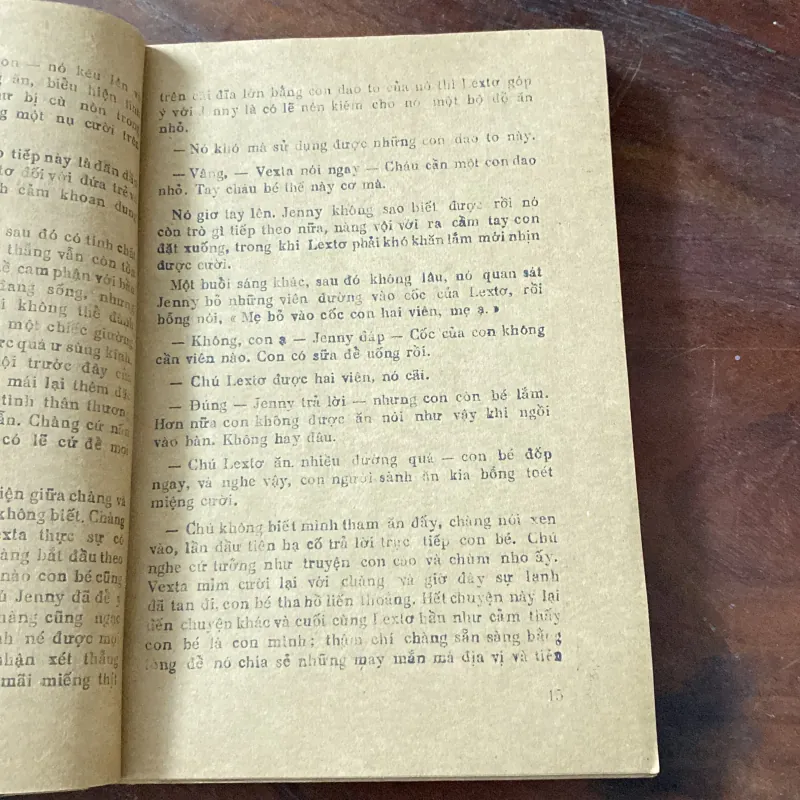 on — nó kêu lên
g ăn, biểu hiện
ư bị cù nôn trong
ng một nụ cười trên
o tiếp này là dần dần
tơ đối với đứa trẻ
h cảm khoan dung
sau đó có tính chất
thẳng vẫn còn tồn
ể cam phận với
đang sống, nhưng
i không thể đánh
một chiếc giường
ợc quá ư sùng kính
ội trước đây của
mái lại thêm
tình thân thương
ẫn. Chàng cứ
có lẽ cứ để mọi
iện giữa chàng và
không biết. Chàng
exta thực sự có
àng bắt đầu theo
nào con bé cũng
ú Jenny đã để ý
hàng cũng ngọc
nh né được mọi
nhận xét thẳng
mãi miếng thịt
trên cái đĩa lớn bằng con dao to của nó thì Lextơ góp
ý với Jenny là có lẽ nên kiếm cho nó một bộ đồ ăn
nhỏ.
— Nó khó mà sử dụng được những con dao to này.
— Vâng, — Vexta nói ngay — Cháu cần một con dao
nhỏ. Tay cháu bé thế này cơ mà.
Nó giơ tay lên. Jenny không sao biết được rồi nó
còn trò gì tiếp theo nữa, nàng vội với ra cầm tay con
đặt xuống, trong khi Lextơ phải khó khăn lắm mới nhịn
được cười.
Một buổi sáng khác, sau đó không lâu, nó quan sát
Jenny bỏ những viên đường vào cốc của Lextơ, rồi
bỗng nói, « Mẹ bỏ vào cốc con hai viên, mẹ ạ. »
— Không, con ạ — Jenny đáp — Cốc của con không
cần viên nào. Con có sữa để uống rồi.
— Chú Lextơ được hai viên, nó cãi.
— Đúng — Jenny trả lời — nhưng con còn bé lắm.
Hơn nữa con không được ăn nói như vậy khi ngồi
vào bàn. Không hay đâu.
— Chú Lextơ ăn nhiều đường quá — con bé đốp
ngay, và nghe vậy, con người sành ăn kia bỗng toét
miệng cười.
— Chú không biết mình tham ăn đấy, chàng nói xen
vào, lần đầu tiên hạ cố trả lời trực tiếp con bé. Chú
nghe cứ tưởng như truyện con cáo và chùm nho ấy.
Vexta mỉm cười lại với chàng và giờ đây sự lạnh
đã tan đi, con bé tha hồ liến thoắng. Hết chuyện này lại
đến chuyện khác và cuối cùng Lextơ hần như cảm thấy
con bé là con mình; thậm chí chàng sẵn sàng bằng
lòng để nó chia sẻ những may mắn mà địa vị và tiền
15